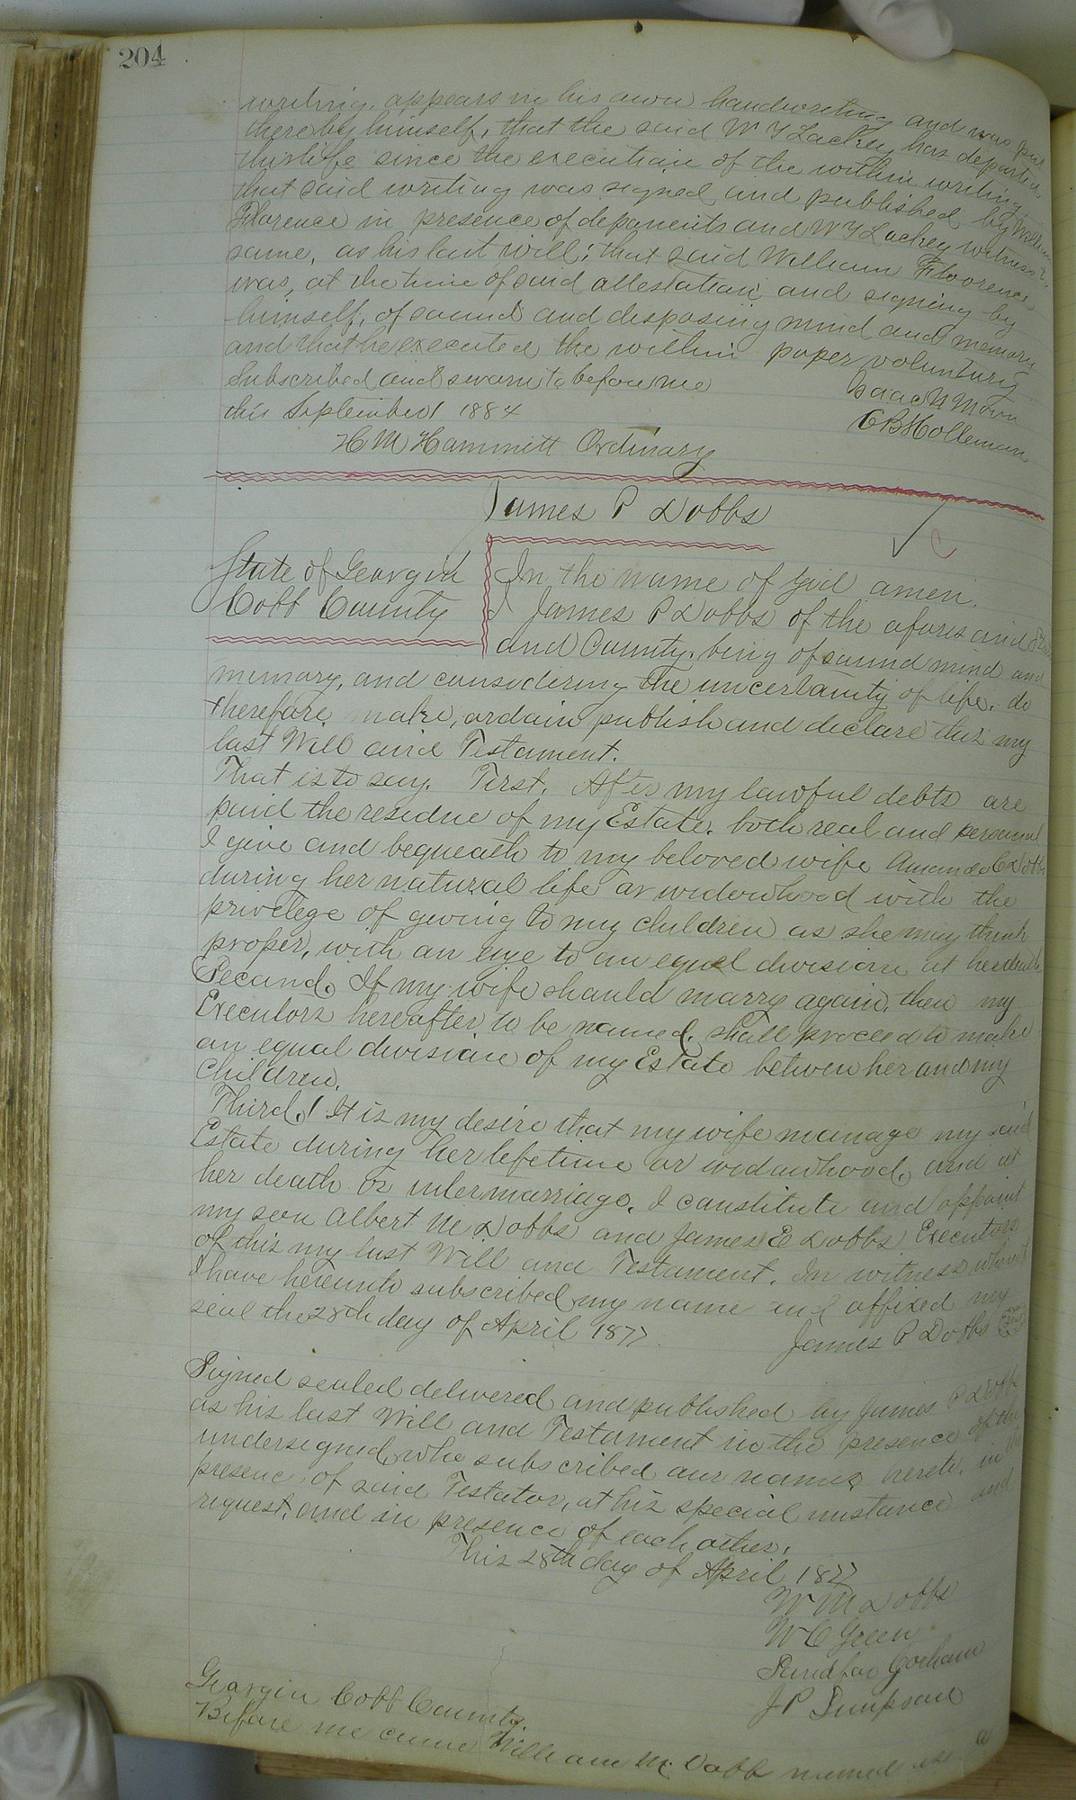 204
writing appears in his own handwriting and was put
there by himself, that the said W Y Lackey has departed
this life since the execution of the within writing,
that said writing was signed and published by William
Florence in presence of deponents and W Y Lackey witness
same, as his last will; that said William Floorence
was, at the time of said allestation and signing by
himself, of sound and disposing mind and memory
and that he executed the within paper voluntary
Subscribed and sworn to before me
Isaac N Moon
this September 1 1884
C B Holleman
H M Hammett Ordinary
James P Dobbs
State of Georgia
Cobb County
In the name of God amen.
I James P Dobbs of the aforesaid State
and County, being of sound mind and
memory, and considering the uncertainity of life, do
therefore make, ordain publish and declare this my
last Will and Testament.
That is to say. First. After my lawful debts are
paid the residue of my Estate, both real and personal
I give and bequeath to my beloved wife Amanda C Dobbs
during her natural life or widowhood with the
privelege of giving to my children as she may think
proper, with an eye to an equal division at her death
Second. If my wife should marry again, then my
Executors hereafter to be named, shall proceed to make
an equal division of my Estate between her and my
Children.
Third. It is my desire that my wife manage my said
Estate during her lifetime or widowhood, and at
her death or intermarriage, I constitute and appoint
my son Albert M Dobbs and James E Dobbs Executors
of this my last Will and Testament. In witness whereof
I have hereunto subscribed my name and affixed my
seal the 28th day of April 1877
James P Dobbs
Signed sealed delivered and published by James P Dobbs
as his last Will and Testament in the presence of the
undersigned, who subscribed our names hereto, in the
presence of said Testator, at his special instance and
request, and in presence of each other.
This 28th day of April 1877
W M Dobbs
W C Green
Sandfor Gorham
J P Simpson
Georgia Cobb County
Before me came William M. Dobb named as a